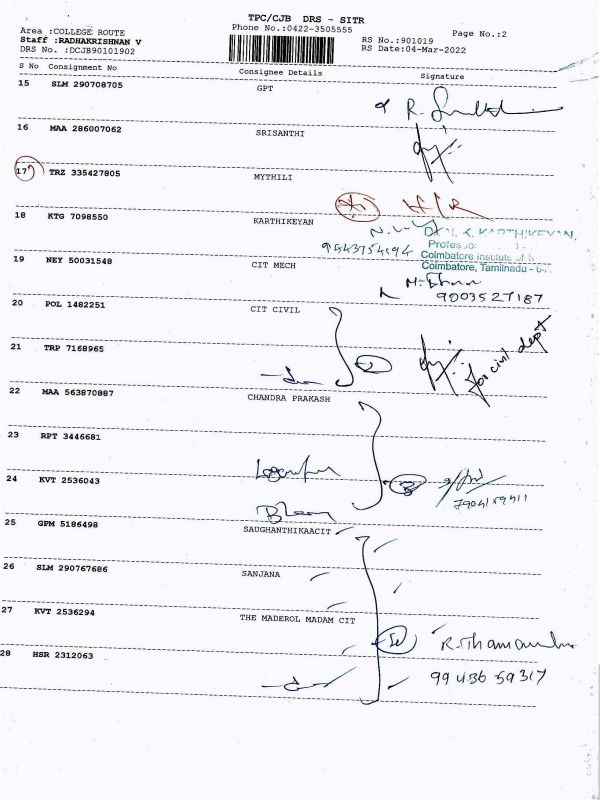 TPC/CJB DRS - SITR
Area :COLLEGE ROUTE
Phone No.:0422-3505555
Page No.:2
Staff :RADHAKRISHNAN V
RS No.:901019
DRS No. :DCJB90101902
RS Date:04-Mar-2022
S No Consignment No Consignee Details Signature
15 SLM 290708705 GPT
R.
16 MAA 286007062 SRISANTHI
17 TRZ 335427805 MYTHILI
18 KTG 7098550 KARTHIKEYAN
K. KARTHIKEYAN.
9543754194 Coimbatore Institute of
19 NEY 50031548 CIT MECH Coimbatore, Tamilnadu -
9003527187
20 POL 1482251 CIT CIVIL
21 TRP 7168965 for civil dept
22 MAA 563870887 CHANDRA PRAKASH
23 RPT 3446681
24 KVT 2536043
25 GPM 5186498 SAUGHANTHIKAACIT
26 SLM 290767686 SANJANA
27 KVT 2536294 THE MADEROL MADAM CIT
28 HSR 2312063
99436 59317